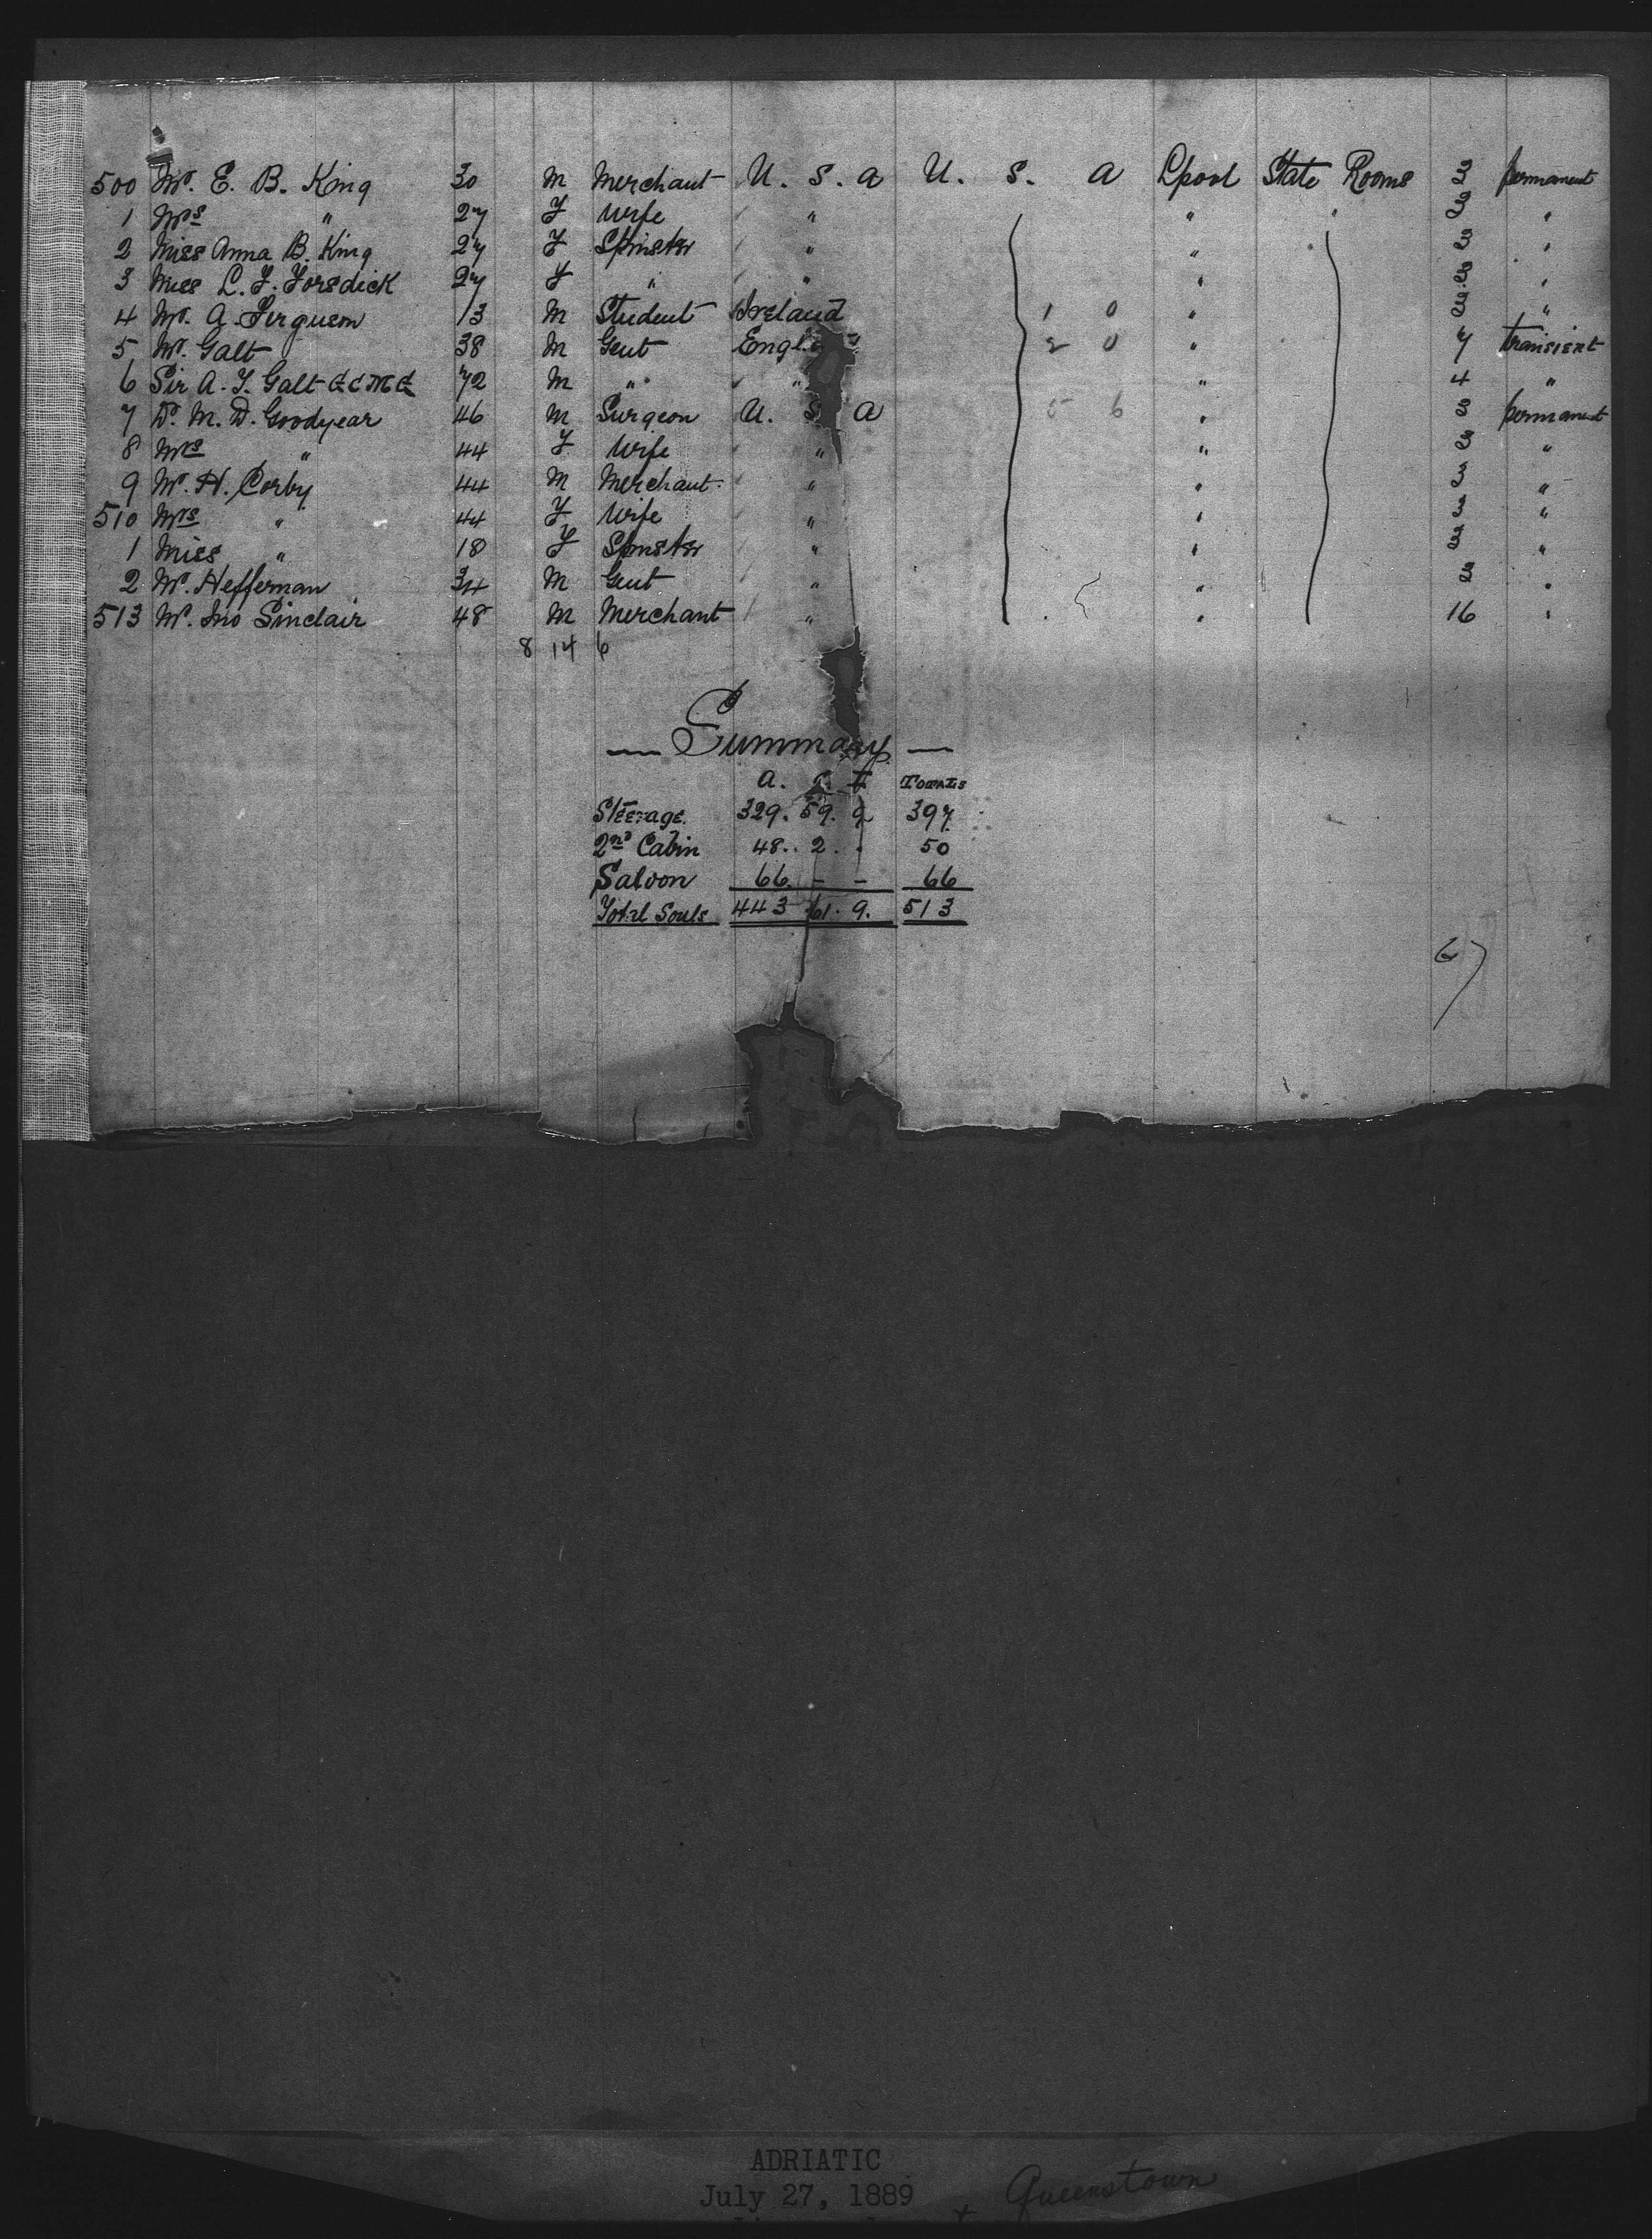 500 Mr. E. B. King 30 M Merchant U. S. A U. S. A Lpool State Rooms 2 permanent
1 Mrs " 27 F Wife " " 2 "
2 Miss Anna B. King 27 F Spinster " " 2 "
3 Miss L. F. Forsdick 27 F " " " 2 "
4 Mr. A. Ferguson 13 M Student Ireland 1 0 " 2 "
5 Mr. Galt 38 M Gent Engl 2 0 " 7 transient
6 Sir A. T. Galt G C M G 72 M " " " 4 "
7 Dr. M. D. Goodyear 46 M Surgeon U. S A 5 6 " 2 permanent
8 Mrs " 44 F Wife " " 2 "
9 Mr. H. Corby 44 M Merchant " " 2 "
510 Mrs " 44 F Wife " " 2 "
1 Miss " 18 F Spinster " " 2 "
2 Mr. Hefferman 34 M Gent " " 2 "
513 Mr. Jno Sinclair 48 M Merchant " " 16 "
8 14 6
— Summary —
A. I Totals
Steerage. 329. 59. 9 397
2nd Cabin 48. 2. 50
Saloon 66. – – 66
Total Souls 443 61. 9. 513
ADRIATIC
July 27, 1889 + Queenstown